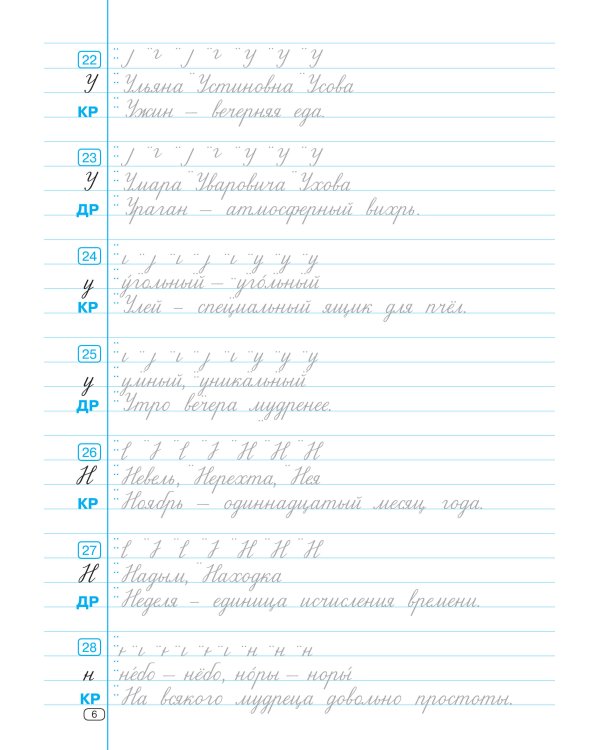 22
У Ульяна Устиновна Усова
КР Ужин – вечерняя еда.
23
У Умара Уваровича Ухова
ДР Ураган – атмосферный вихрь.
24 у у у
у у́гольный – уго́льный
КР Улей – специальный ящик для пчёл.
25 у у у
у умный, уникальный
ДР Утро вечера мудренее.
26 Н Н Н
Н Невель, Нерехта, Нея
КР Ноябрь – одиннадцатый месяц года.
27 Н Н Н
Н Надым, Находка
ДР Неделя – единица исчисления времени.
28 н н н
н не́бо – нёбо, но́ры – норы́
КР На всякого мудреца довольно простоты.
6